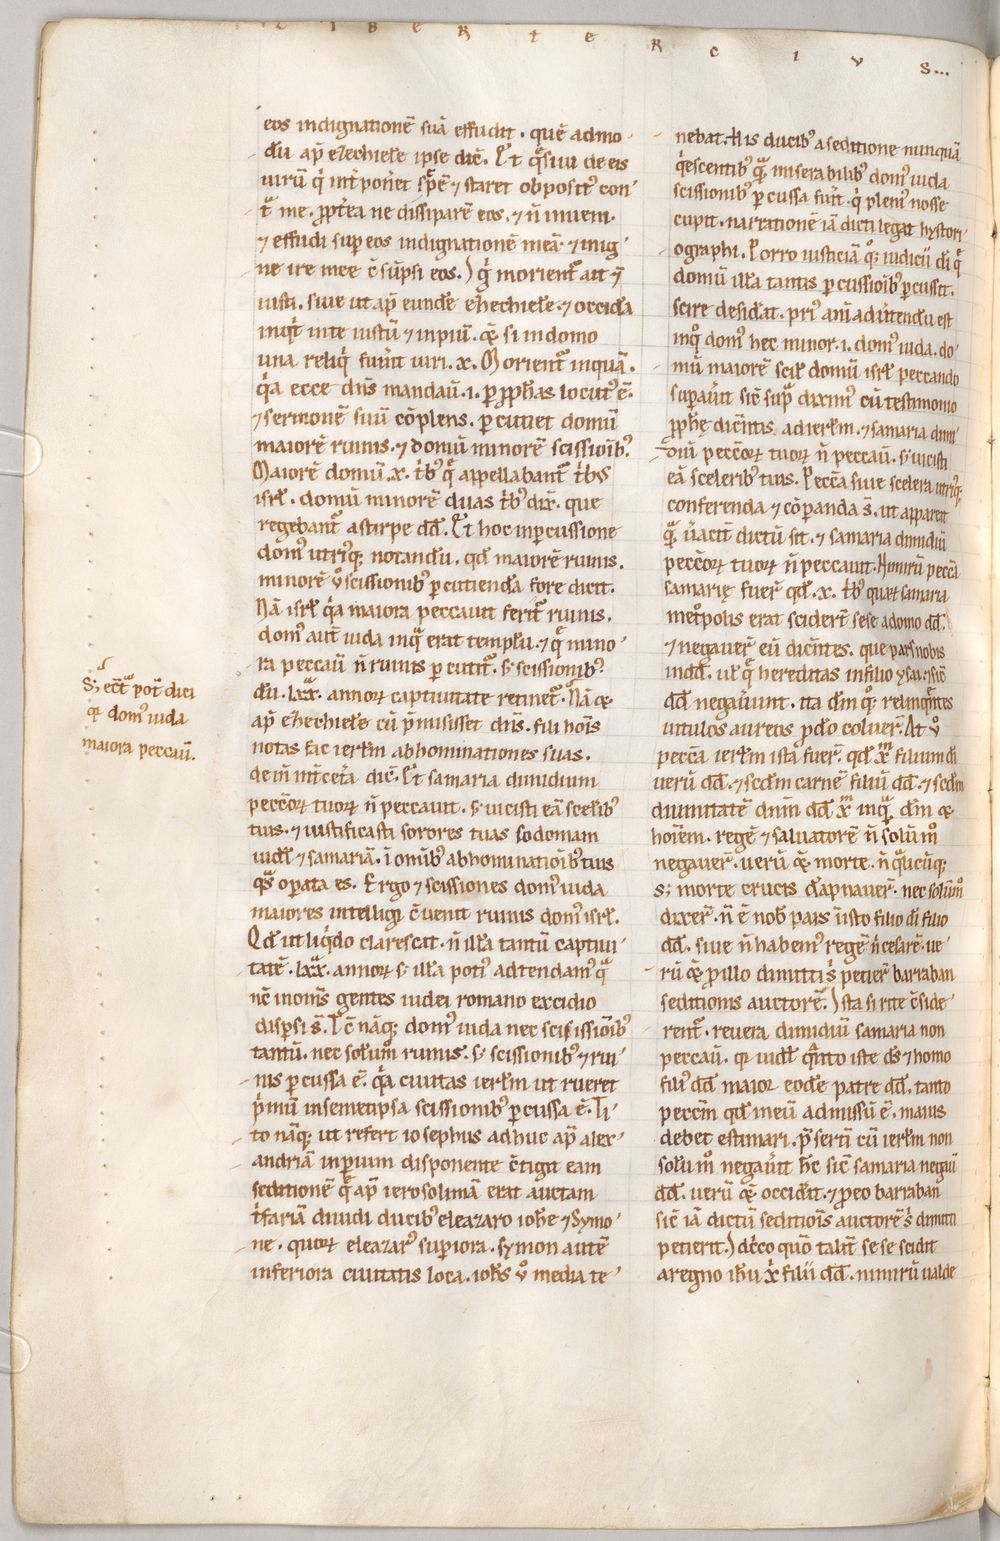 LIBER TERCIVS...
eos indignationē suā effudit. quē admo
dū ap̄ ezechiele ipse dic̄. Et q̄siui de eis
uirū q̇ int̄poneret sp̄ē ⁊ staret opposit᷒ con
t̄ me. ꝓpt̄ea ne dissiparē eos. ⁊ n̄ inueni.
⁊ effudi sup̄ eos indignationē meā. ⁊ in ig
ne ire mee c̄sūpsi eos. Iġ morient᷑ ait ⁊
iusti. siue ut ap̄ eundē ezechiele. ⁊ occidā
inq̇t in te iustū ⁊ inpiū. ⁊ si in domo
una reliq̇ fuerīt uiri .x. Morient᷑ inquā.
q̇a ecce dn̄s mandau̅ .i. ꝑ ꝓph̄as locut᷒ ē.
⁊ sermonē suū cōplens. ꝑcutiet domū
maiorē ruinis. ⁊ domū minorē scissioīb᷒.
Maiorē domū .x. t̄b᷒ q̄ appellabant᷑ t̄b᷒
isrl̄. domū minorē duas t̄b᷒ dix̄. que
regebant᷑ a stirpe dd̄. Et hoc in ꝑcussione
dom᷒ utriq; notandū. qd̄ maiorē ruinis.
minorē v̊ scissionib᷒ ꝑcutiendā fore dicit.
Nā isrl̄ q̇a maiora peccauit ferit᷑ ruinis.
dom᷒ aut̄ iuda in q̄ erat templū. ⁊ q̄ mino
ra peccau̅ n̄ ruinis ꝑcutit᷑. s; scissionib᷒.
dū .lxx. annoꝝ captiuitate retinet᷑. Nā ⁊
ap̄ ezechiele cū p̄misisset dn̄s. fili hoīs
notas fac ierl̄m abhominationes suas.
dein̄ int̄ cet̄a dic̄. Et samaria dimidium
peccōꝝ tuoꝝ n̄ peccauit. s; uicisti eā scelib᷒
tuis. ⁊ iustificasti sorores tuas sodomam
uidl̄ ⁊ samariā. ī omīb᷒ abhominatioīb᷒ tuis
q̄s operata es. Ergo ⁊ scissiones dom᷒ iuda
maiores intelligi c̄uenit ruinis dom᷒ isrl̄.
Qd̄ ut liq̇do clarescat. n̄ illā tantū captiui
tatē .lxx. annoꝝ s; illā poti᷒ adtendam᷒ q̄
nc̄ in om̄s gentes iudei romano excidio
disꝑsi s̄. Tc̄ nāq; dom᷒ iuda nec scissioīb᷒
tantū. nec solum ruinis. s; scissionib᷒ ⁊ rui
nis ꝑcussa ē. q̇a ciuitas ierl̄m ut rueret
ṗmū in semetipsa scissionib᷒ ꝑcussa ē. Ti
to nāq; ut refert iosephus adhuc ap̄ alex
andriā inperium disponente c̄tigit eam
seditionē q̄ ap̄ ierosolimā erat auctam
t̄fariā diuidi ducib᷒ eleazaro ioh̄e ⁊ Symo
ne. quoꝝ eleazar᷒ superiora. symon autē
inferiora ciuitatis loca. ioh̄s v̊ media te
S; ecc̄ pot̄ dici
qᷓ dom᷒ iuda
maiora peccau̅.
nebat. His ducib᷒ a seditione nunquā
q̇escentib᷒ q̄ miserabilib᷒ dom᷒ iuda
scissionib᷒ ꝑcussa fuīt. q̇ pleni᷒ nosse
cupit. narrationē iā dicti legat hystori
ographi. Porro iusticiā q̊; iudiciū dī q̄
domū illā tantis ꝑcussioīb᷒ ꝑcussit.
scire desidat. pri᷒ anīaduertendū est
in q̊ dom᷒ hec minor .i. dom᷒ iuda. do
mū maiorē scil̄ domū isrl̄ peccando
sup̄auit sic̄ sup̄ dixim᷒ cū testimonio
ꝓph̄ę dicētis ad ierl̄m. ⁊ samaria dimi
diū peccōꝝ tuoꝝ n̄ peccau̅. s; uicisti
eā sceleribus tuis. Peccā siue scelera utriq;
conferenda ⁊ cōparanda s̄. ut appareat
q̄ u̅acit̄ dictū sit. ⁊ samaria dimidiū
peccōꝝ tuoꝝ n̄ peccauit. Nimirū peccā
samarię fuer̄ qd̄ .x. t̄b᷒ quaꝝ samaria
metꝓolis erat sciderīt sese a domo dd̄.
⁊ negauer̄ eū dicētes. que pars nobis
in dd̄. ul̄ q̄ hereditas in filio ysai. ⁊ sic̄
dd̄ negauerunt. ita dm̄ q̊; relinq̄ntes
uitulos aureos ꝓ dō coluer̄. At v̊
peccā ierl̄m ista fuer̄. qd̄ xm̄ filium dī
verū dd̄. ⁊ scd̄m carnē filiū dd̄. ⁊ scd̄m
diuinitatē dnm̄ dd̄ xm̄ inq̄ dm̄ ⁊
hoīem. regē ⁊ saluatorē n̄ solū m̊
negauer̄. verū ⁊ morte. n̄ q̄licūq;
s; morte crucis dāpnauer̄. nec solūm̊
dixer̄. n̄ ē nob̄ pars in isto filio dī filio
dd̄. siue n̄ habem᷒ regē n̄ cesarē. ue
rū ⁊ ꝓ illo dimitti s̄ petier̄ barraban
seditionis auctorē. Ista si rite c̄side
rent᷑. reuera dimidiū samaria non
peccau̅. qᷓ uidl̄ q̄nto iste ds̄ ⁊ homo
fili᷒ dd̄ maior eodē patre dd̄. tanto
peccm̄ qd̄ in eū admissū ē. maius
debet estimari. p̄sertī cū ierl̄m non
solū m̊ negauit hc̄ sic̄ samaria negau̅
dd̄. uerū ⁊ occidit. ⁊ ꝓ eo barraban
sic̄ iā dictū seditiōis auctorē s̄ dimitti
petierit. Idc̄co quō talit̄ sese scidit
a regno ihū x̄ filii dd̄. nimirū ualde